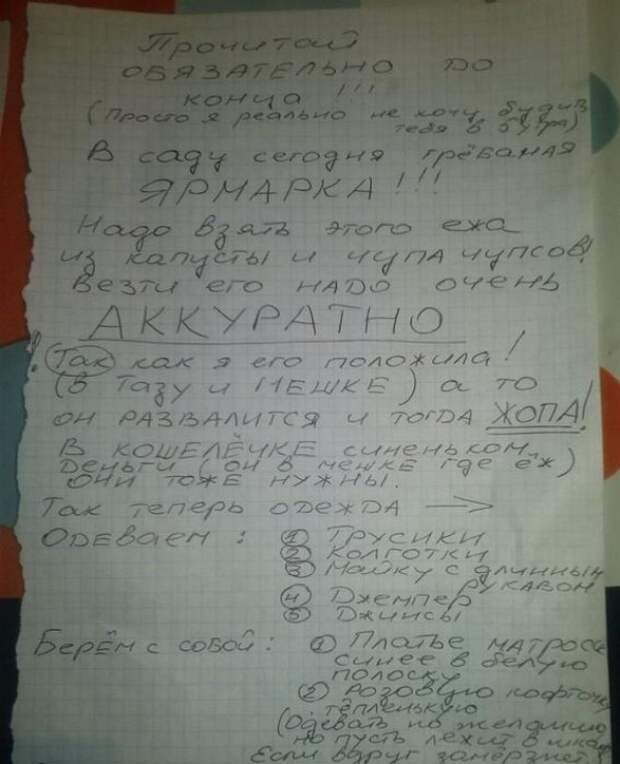 Прочитай
обязательно до
конца!!!
(Просто я реально не хочу будить
тебя в 5 утра)
В саду сегодня грёбаная
ЯРМАРКА!!!
Надо взять этого ежа
из капусты и чупа чупсов!
Везти его надо очень
АККУРАТНО
! Так как я его положила!
(в тазу и мешке) а то
он развалится и тогда ЖОПА!
В кошелёчке синеньком
деньги (он в мешке где ёж)
они тоже нужны.
Так теперь одежда →
Одеваем: ① Трусики
② Колготки
③ Майку с длинным
рукавом
④ Джемпер
⑤ Джинсы
Берём с собой: ① Платье матроск
синее в белую
полоску
② розовую кофточку
тёпленькую
(Одевать по желанию
но пусть лежит в шкаф
Если вдруг замёрзнет)